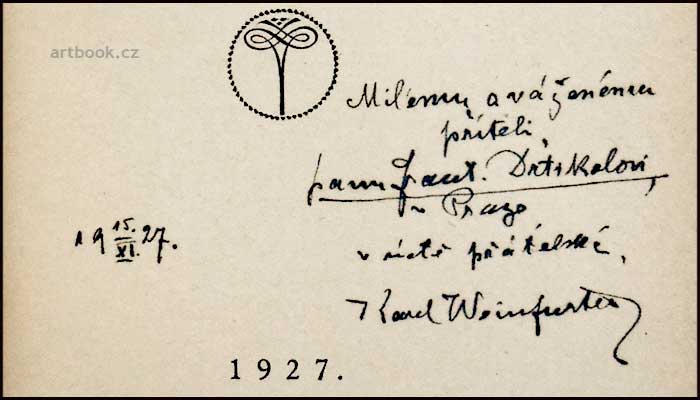 artbook.cz
Milému a váženému
příteli
panu Frant. Drtikolovi,
v Praze
v úctě přátelské,
Karel Weinfurter
19 15. XI. 27.
1927.